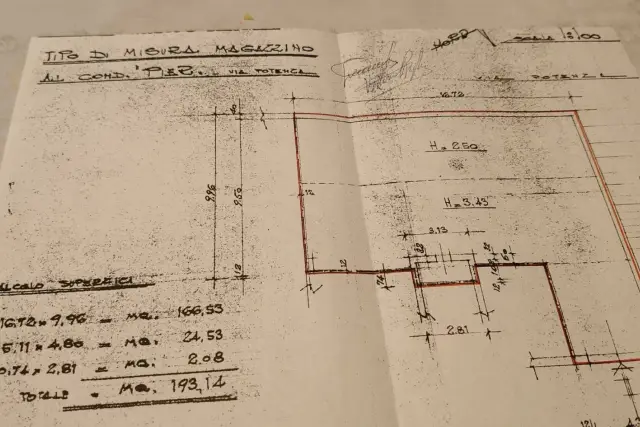 TIPO DI MISURA MAGAZZINO
AL COND. "P.E.P." VIA POTENZA
NORD
SCALA 1:100
VIA POTENZA
16.72
H = 2.50
H = 3.43
3.13
9.96
9.50
12
12
12
22
60
2.81
CALCOLO SUPERFICI
16,72 x 9,96 = MQ. 166,53
5.11 x 4,80 = MQ. 24,53
0,74 x 2,81 = MQ. 2.08
TOTALE = MQ. 193,14